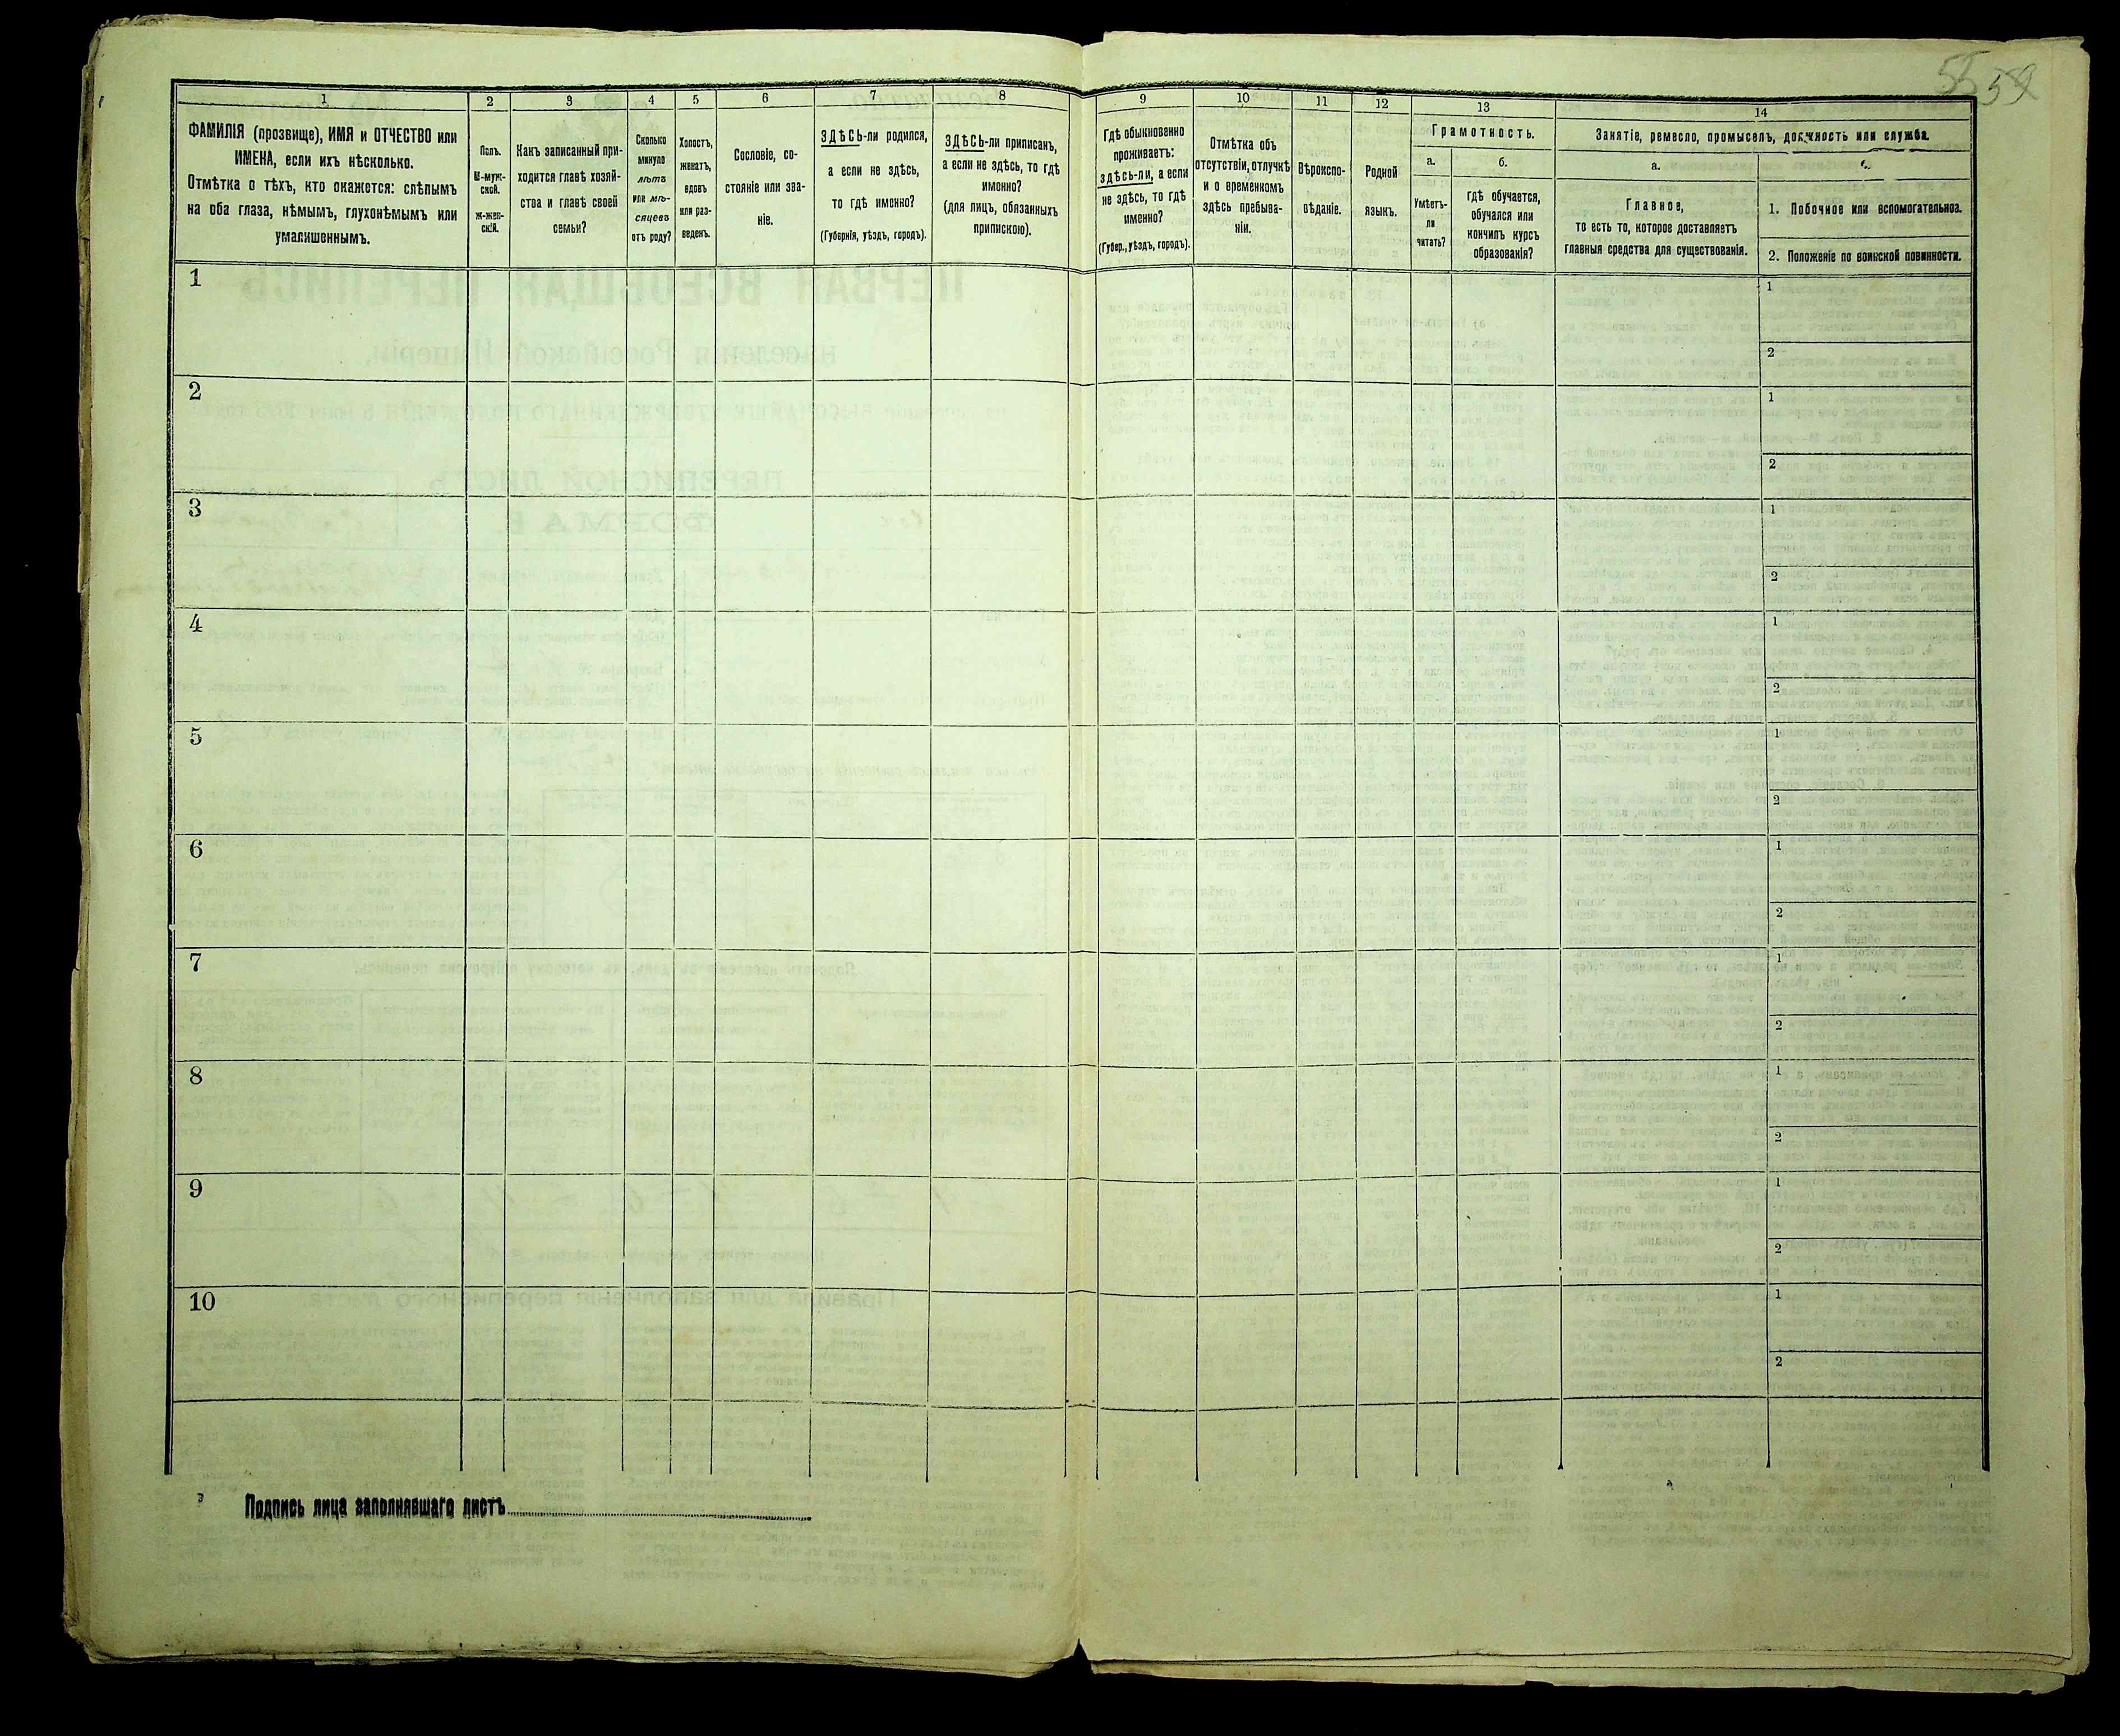 55 59
1 2 3 4 5 6 7 8 9 10 11 12 13 14
ФАМИЛІЯ (прозвище), ИМЯ и ОТЧЕСТВО или
ИМЕНА, если ихъ нѣсколько.
Отмѣтка о тѣхъ, кто окажется: слѣпымъ
на оба глаза, нѣмымъ, глухонѣмымъ или
умалишеннымъ.
Полъ.
М-муж-
ской.
Ж-жен-
скій.
Какъ записанный при-
ходится главѣ хозяй-
ства и главѣ своей
семьи?
Сколько
минуло
лѣтъ
или мѣ-
сяцевъ
отъ роду?
Холостъ,
женатъ,
вдовъ
или раз-
веденъ.
Сословіе, со-
стояніе или зва-
ніе.
ЗДѢСЬ-ли родился,
а если не здѣсь,
то гдѣ именно?
(Губернія, уѣздъ, городъ).
ЗДѢСЬ-ли приписанъ,
а если не здѣсь, то гдѣ
именно?
(для лицъ, обязанныхъ
припискою).
Гдѣ обыкновенно
проживаетъ:
здѣсь-ли, а если
не здѣсь, то гдѣ
именно?
(Губер., уѣздъ, городъ).
Отмѣтка объ
отсутствіи, отлучкѣ
и о временномъ
здѣсь пребыва-
ніи.
Вѣроиспо-
вѣданіе.
Родной
языкъ.
Грамотность.
а.
Умѣетъ-
ли
читать?
б.
гдѣ обучается,
обучался или
кончилъ курсъ
образованія?
Занятіе, ремесло, промыселъ, должность или служба.
а.
Главное,
то есть то, которое доставляетъ
главныя средства для существованія.
1. Побочное или вспомогательное.
2. Положеніе по воинской повинности.
1 1
2
2 1
2
3 1
2
4 1
2
5 1
2
6 1
2
7 1
2
8 1
2
9 1
2
10 1
2
Подпись лица заполнявшаго листъ